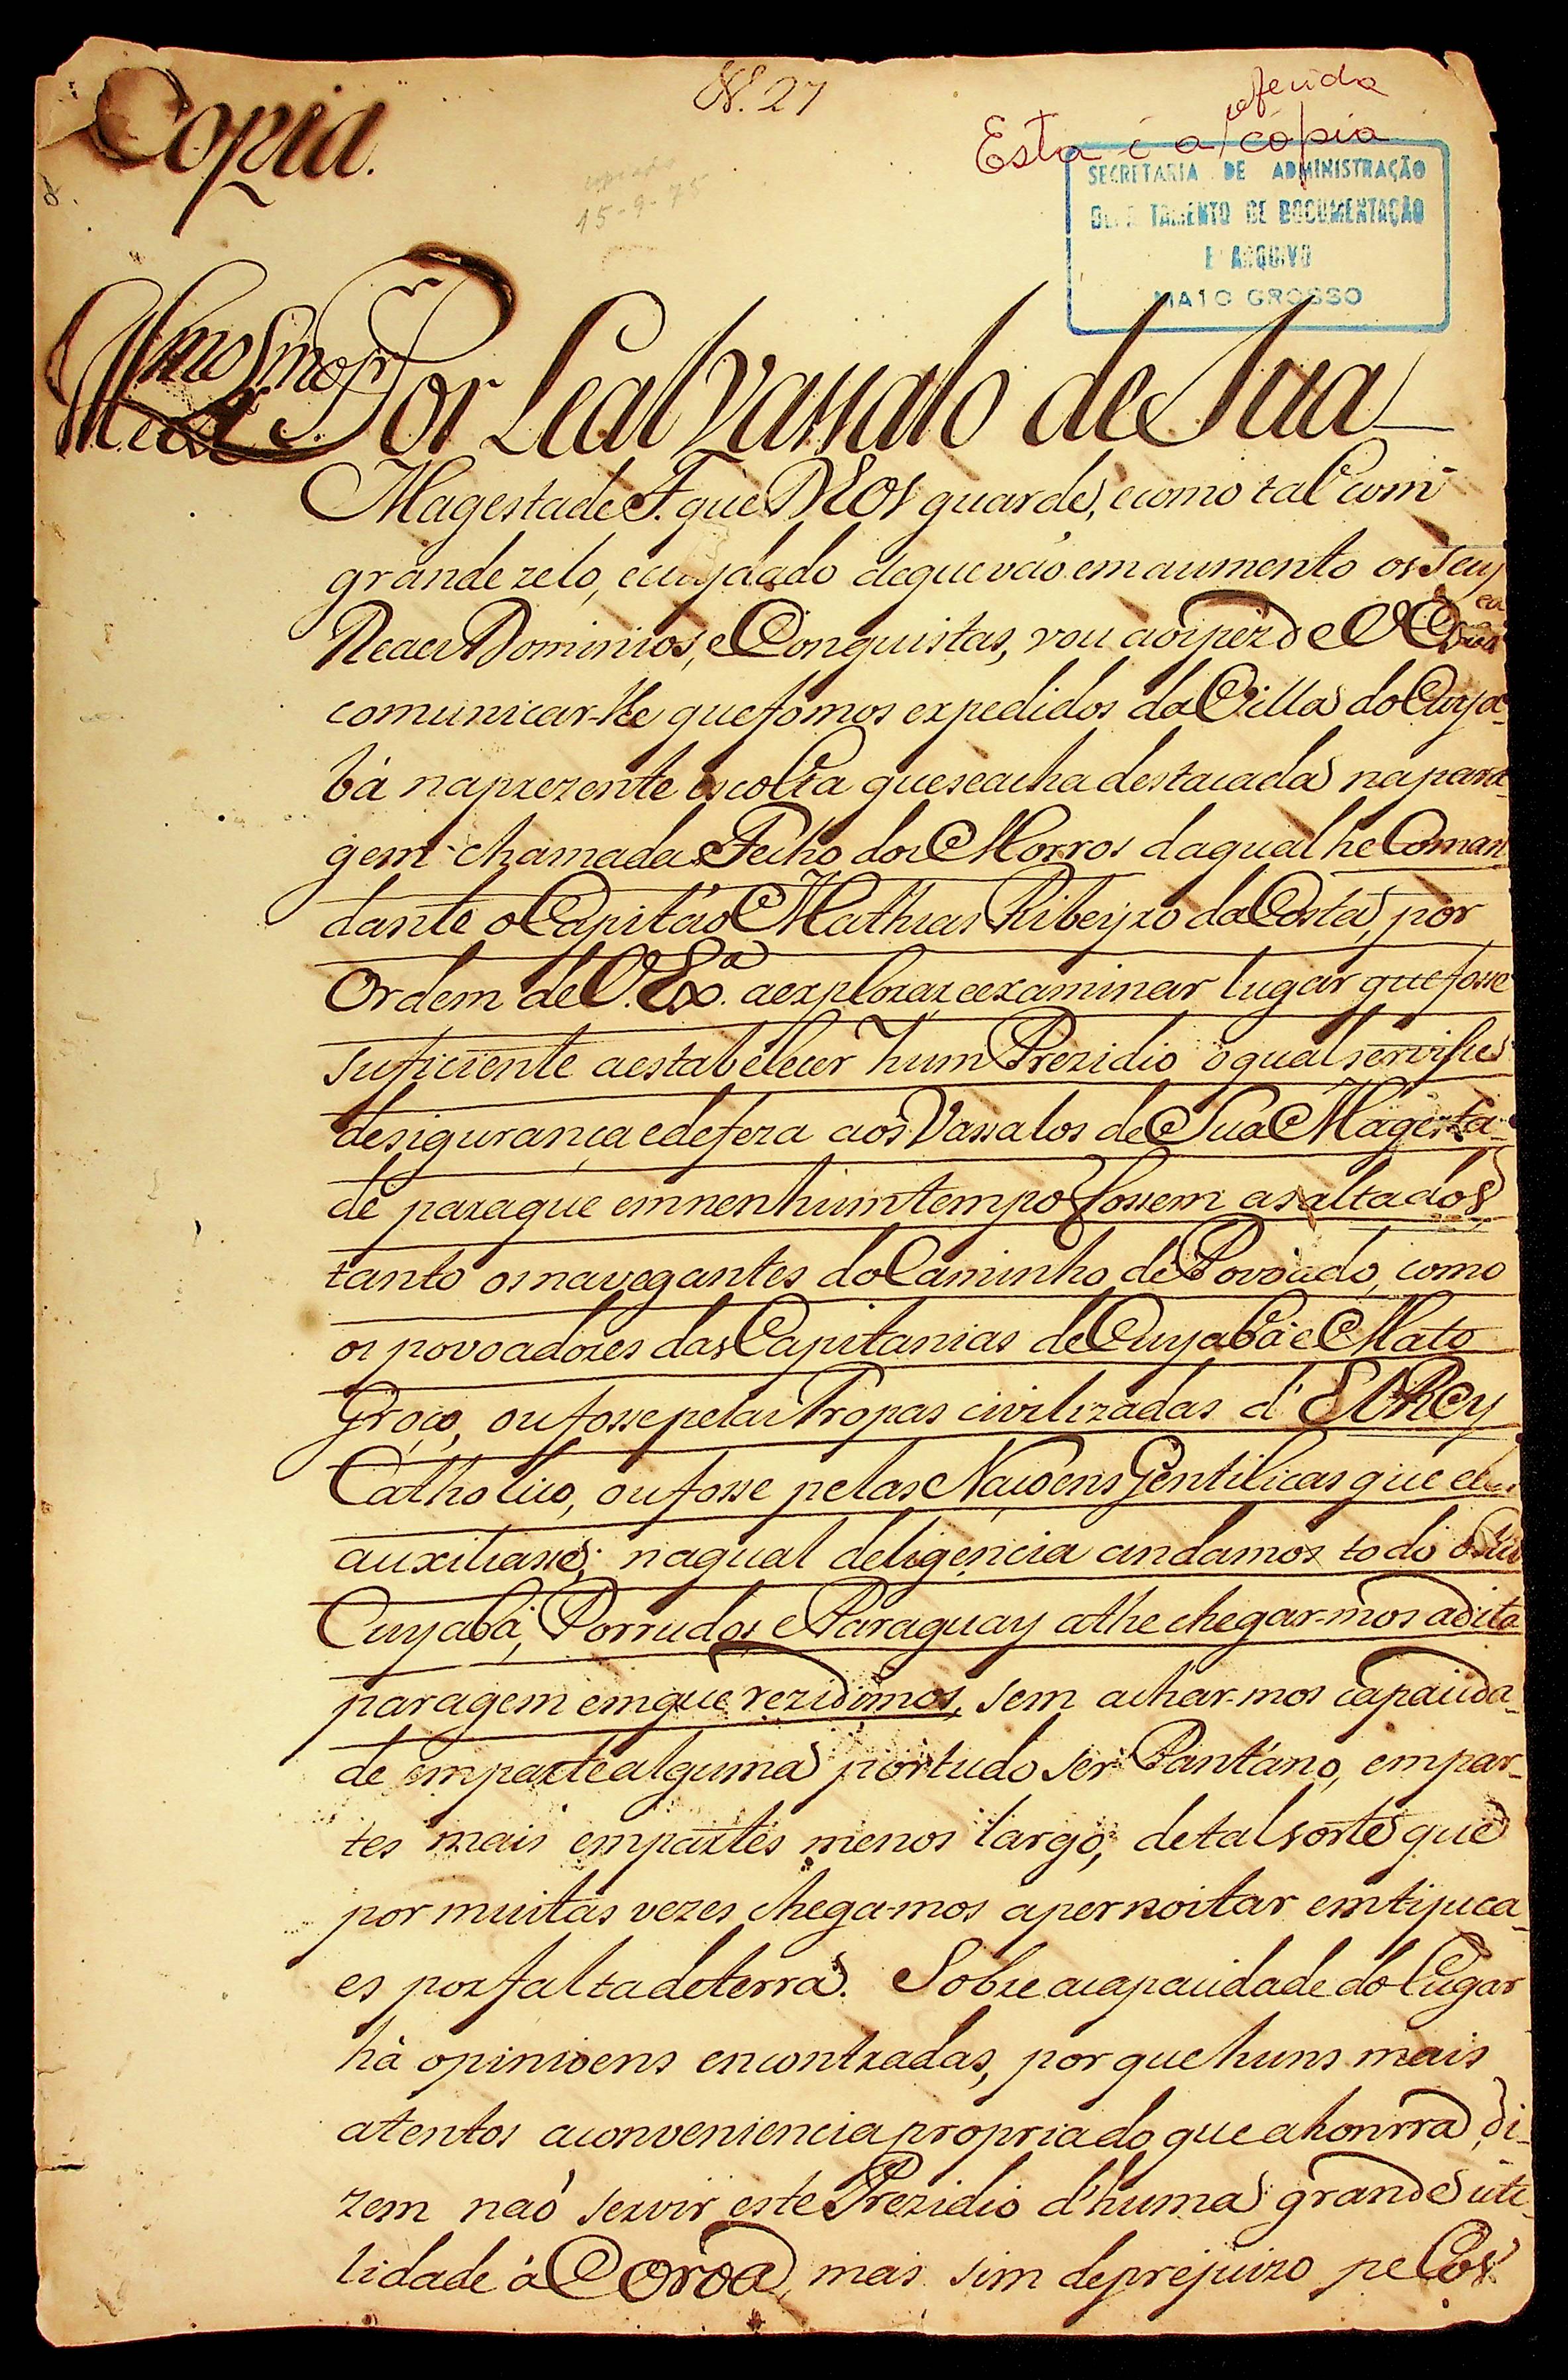 Copia.
N. 27
referida
Esta é a copia
SECRETARIA DE ADMINISTRAÇÃO
DEPARTAMENTO DE DOCUMENTAÇÃO
E ARQUIVO
MATO GROSSO
copiado
15-9-75
Por Leal Vassalo de Sua
Magestade F. que DEOS guarde, e como tal com
grande zelo, e cuydado de que vaõ em aumento os seus
Reaes Dominios, e Conquistas, vou aos pez de
comunicar-lhe que fomos expedidos da Villa do Cuya-
bá na prezente escolta que se acha destacada na para-
gem chamada Fecho dos Morros da qual he Coman
dante o Capitaõ Mathias Ribeyro da Costa, por
Ordem de V. Exª. a explorar e examinar lugar que fosse
suficiente a estabelecer hum Prezidio o qual servisse
de sigurança e defeza aos Vassalos de Sua Magesta-
de para que em nenhum tempo fossem asaltados
tanto os navegantes do Caminho de Povoado, como
os povoadores das Capitanias de Cuyabá e Mato
Groço, ou fosse pelas Tropas civilizadas d'ELREY
Catholico, ou fosse pelas Naçoens Gentilicas que
auxiliasse; na qual deligencia andamos todo o
Cuyabá, Porrudos, e Paraguay athe chegar-mos a dita
paragem em que rezidimos, sem achar-mos capacida-
de em parte alguma por tudo ser Pantáno, em par-
tes mais em partes menos largo, de tal sorte que
por muitas vezes chega-mos a pernoitar em tijuca-
es por falta de terra. Sobre a capacidade do Lugar
há opinioens encontradas, por que huns mais
atentos a conveniencia propria do que a honrra di-
zem naõ servir este Prezidio d'huma grande uti-
lidade á Coroa, mais sim de prejuizo pelos